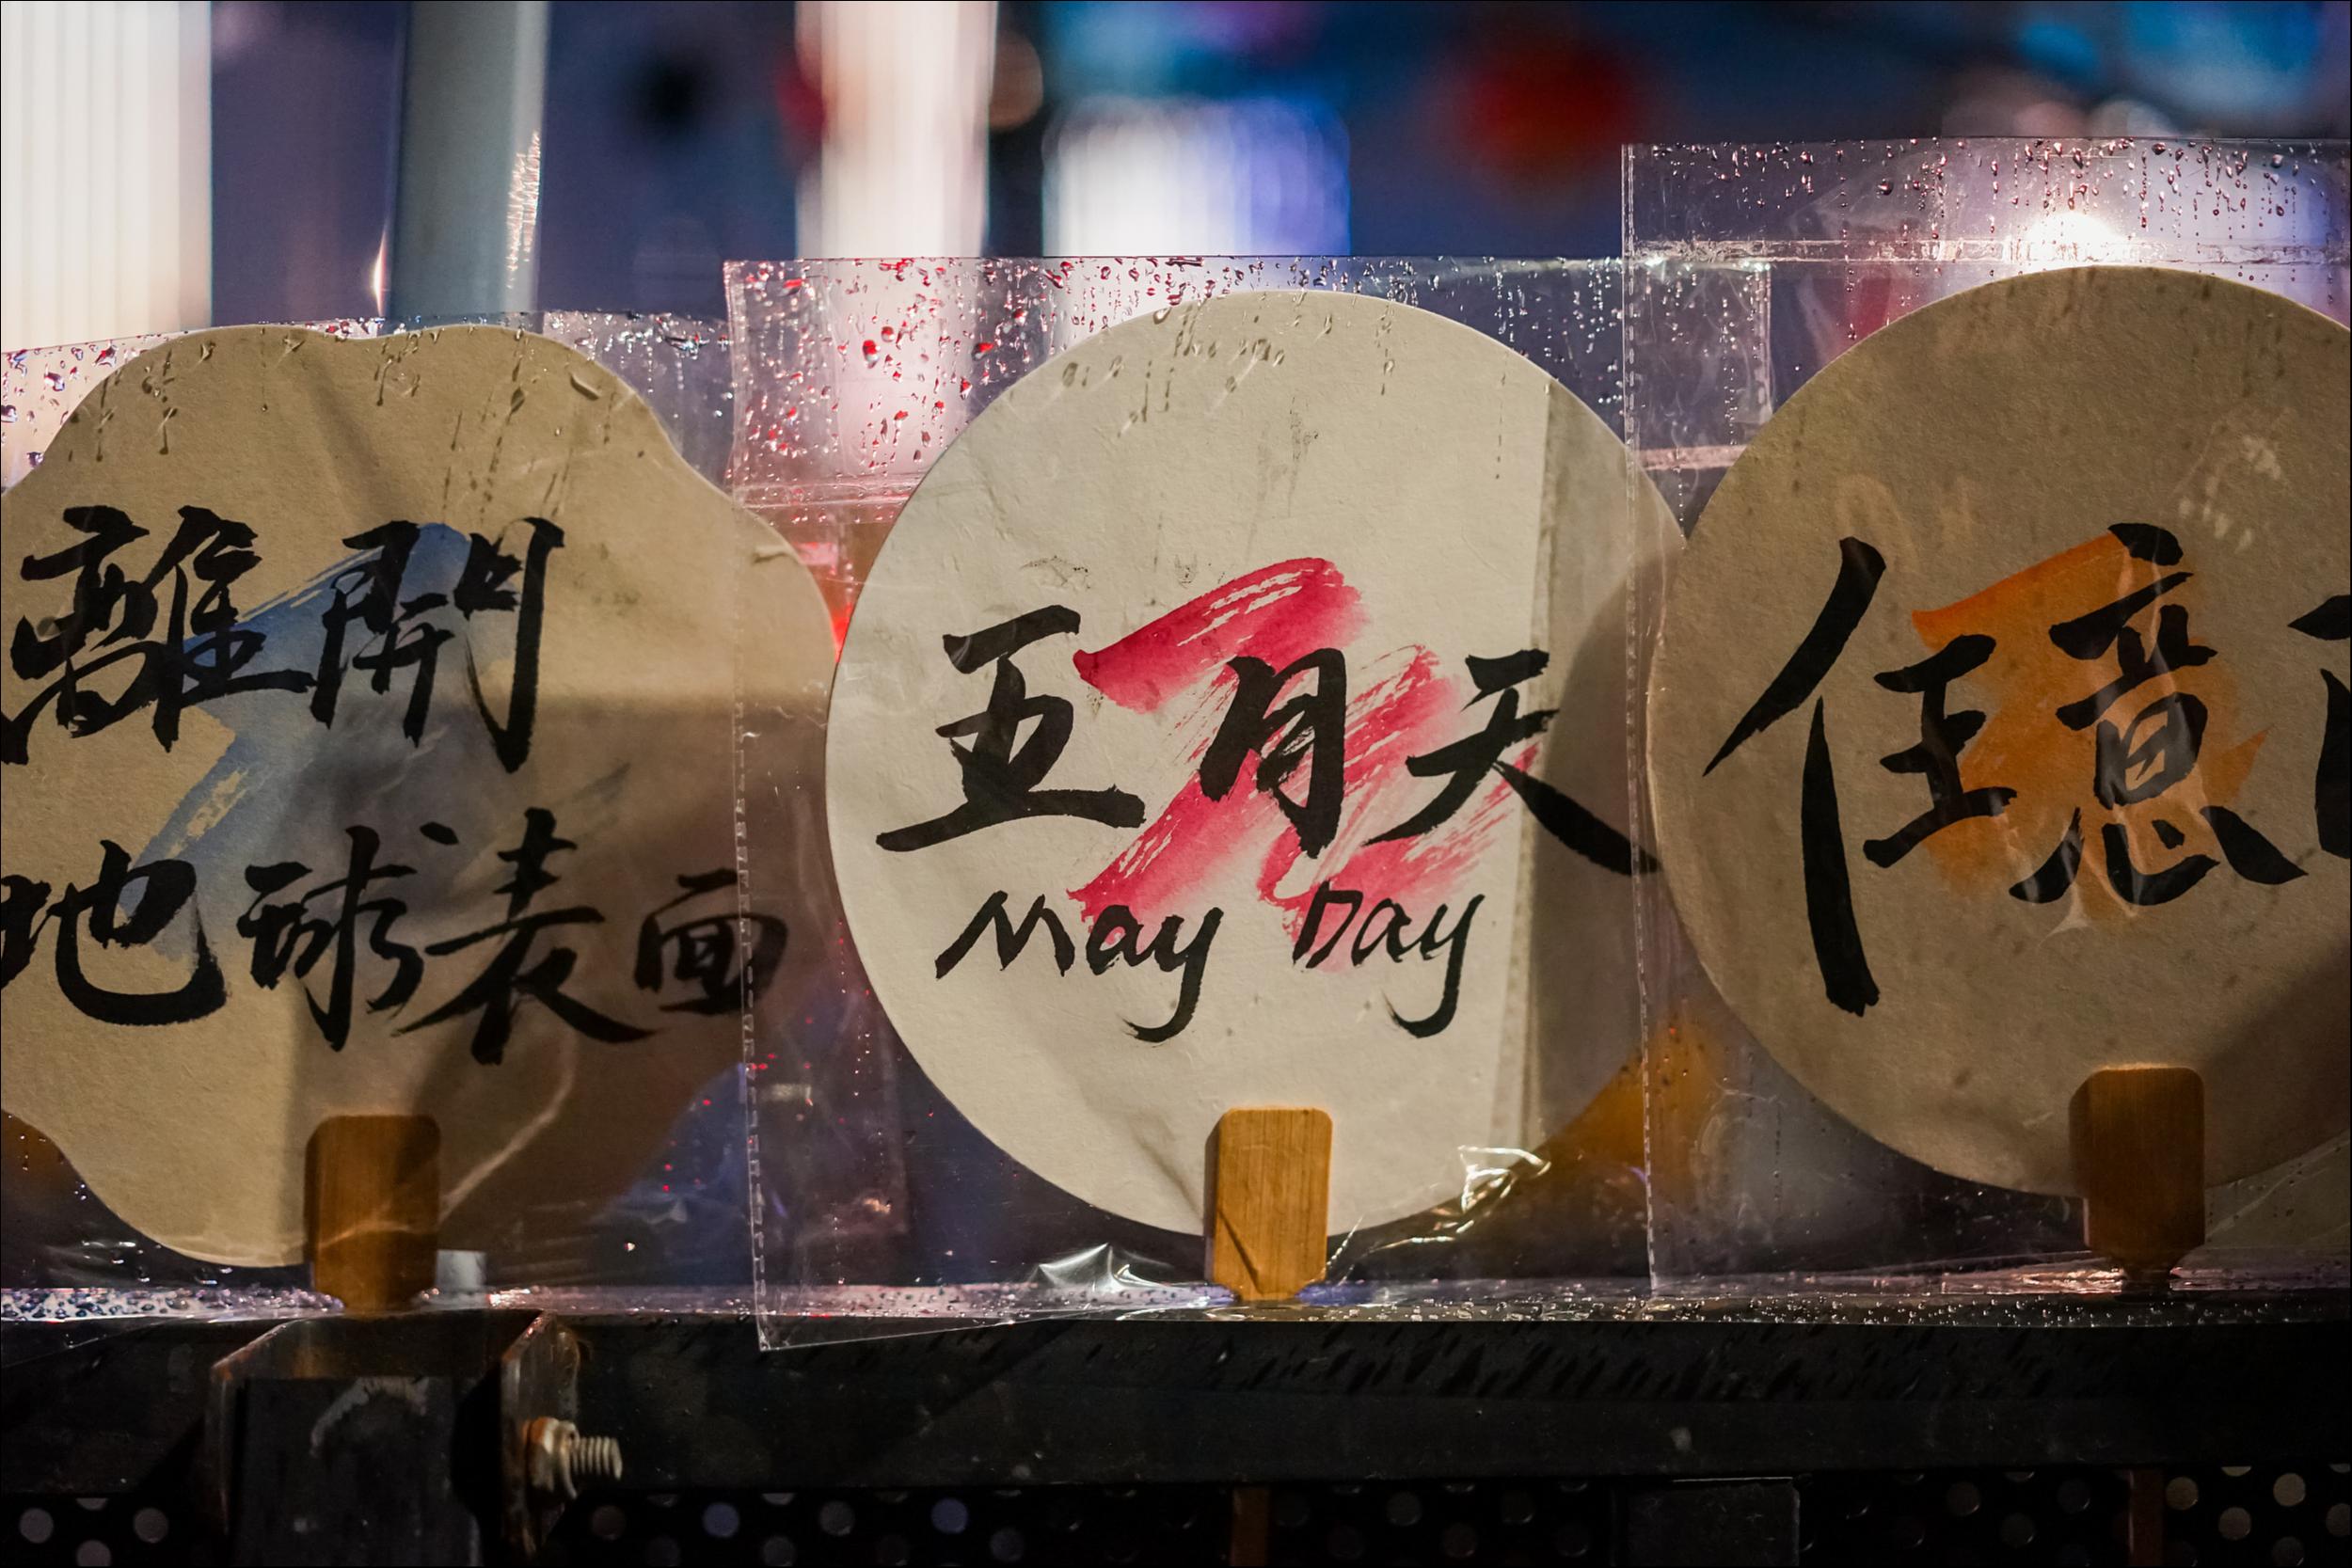 離開
地球表面
五月天
May Day
任意